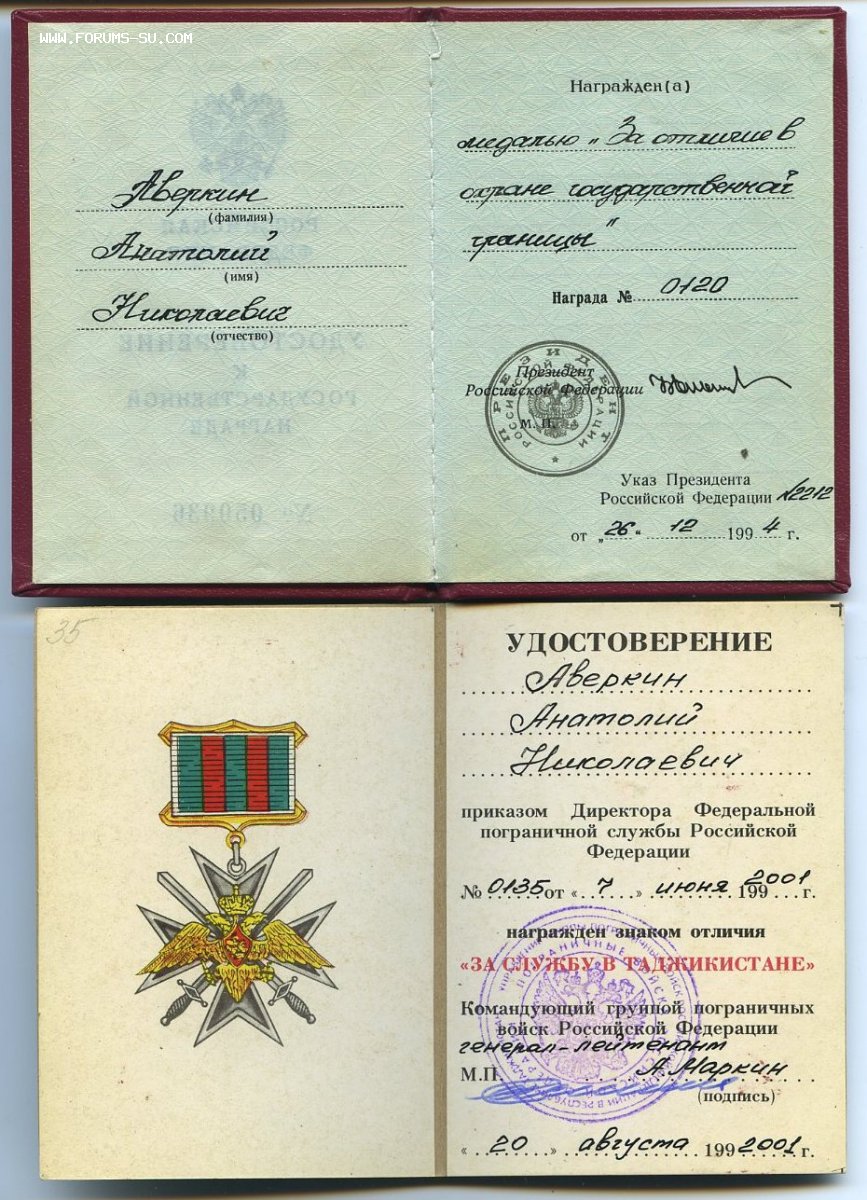 WWW.FORUMS-SU.COM
Аверкин
(фамилия)
Анатолий
(имя)
Николаевич
(отчество)
Награжден(а)
медалью „За отличие в
охране государственной
границы"
Награда № 0120
Президент
Российской Федерации
М. П.
ПРЕЗИДЕНТ
РОССИЙСКОЙ ФЕДЕРАЦИИ
Указ Президента
Российской Федерации №2212
от „26" 12 1994 г.
35
УДОСТОВЕРЕНИЕ
Аверкин
Анатолий
Николаевич
приказом Директора Федеральной
пограничной службы Российской
Федерации
№ 0135 от « 7 » июня 199 2001 г.
награжден знаком отличия
«ЗА СЛУЖБУ В ТАДЖИКИСТАНЕ»
Командующий группой пограничных
войск Российской Федерации
генерал-лейтенант
М.П. А. Маркин
(подпись)
« 20 » августа 199 2001 г.